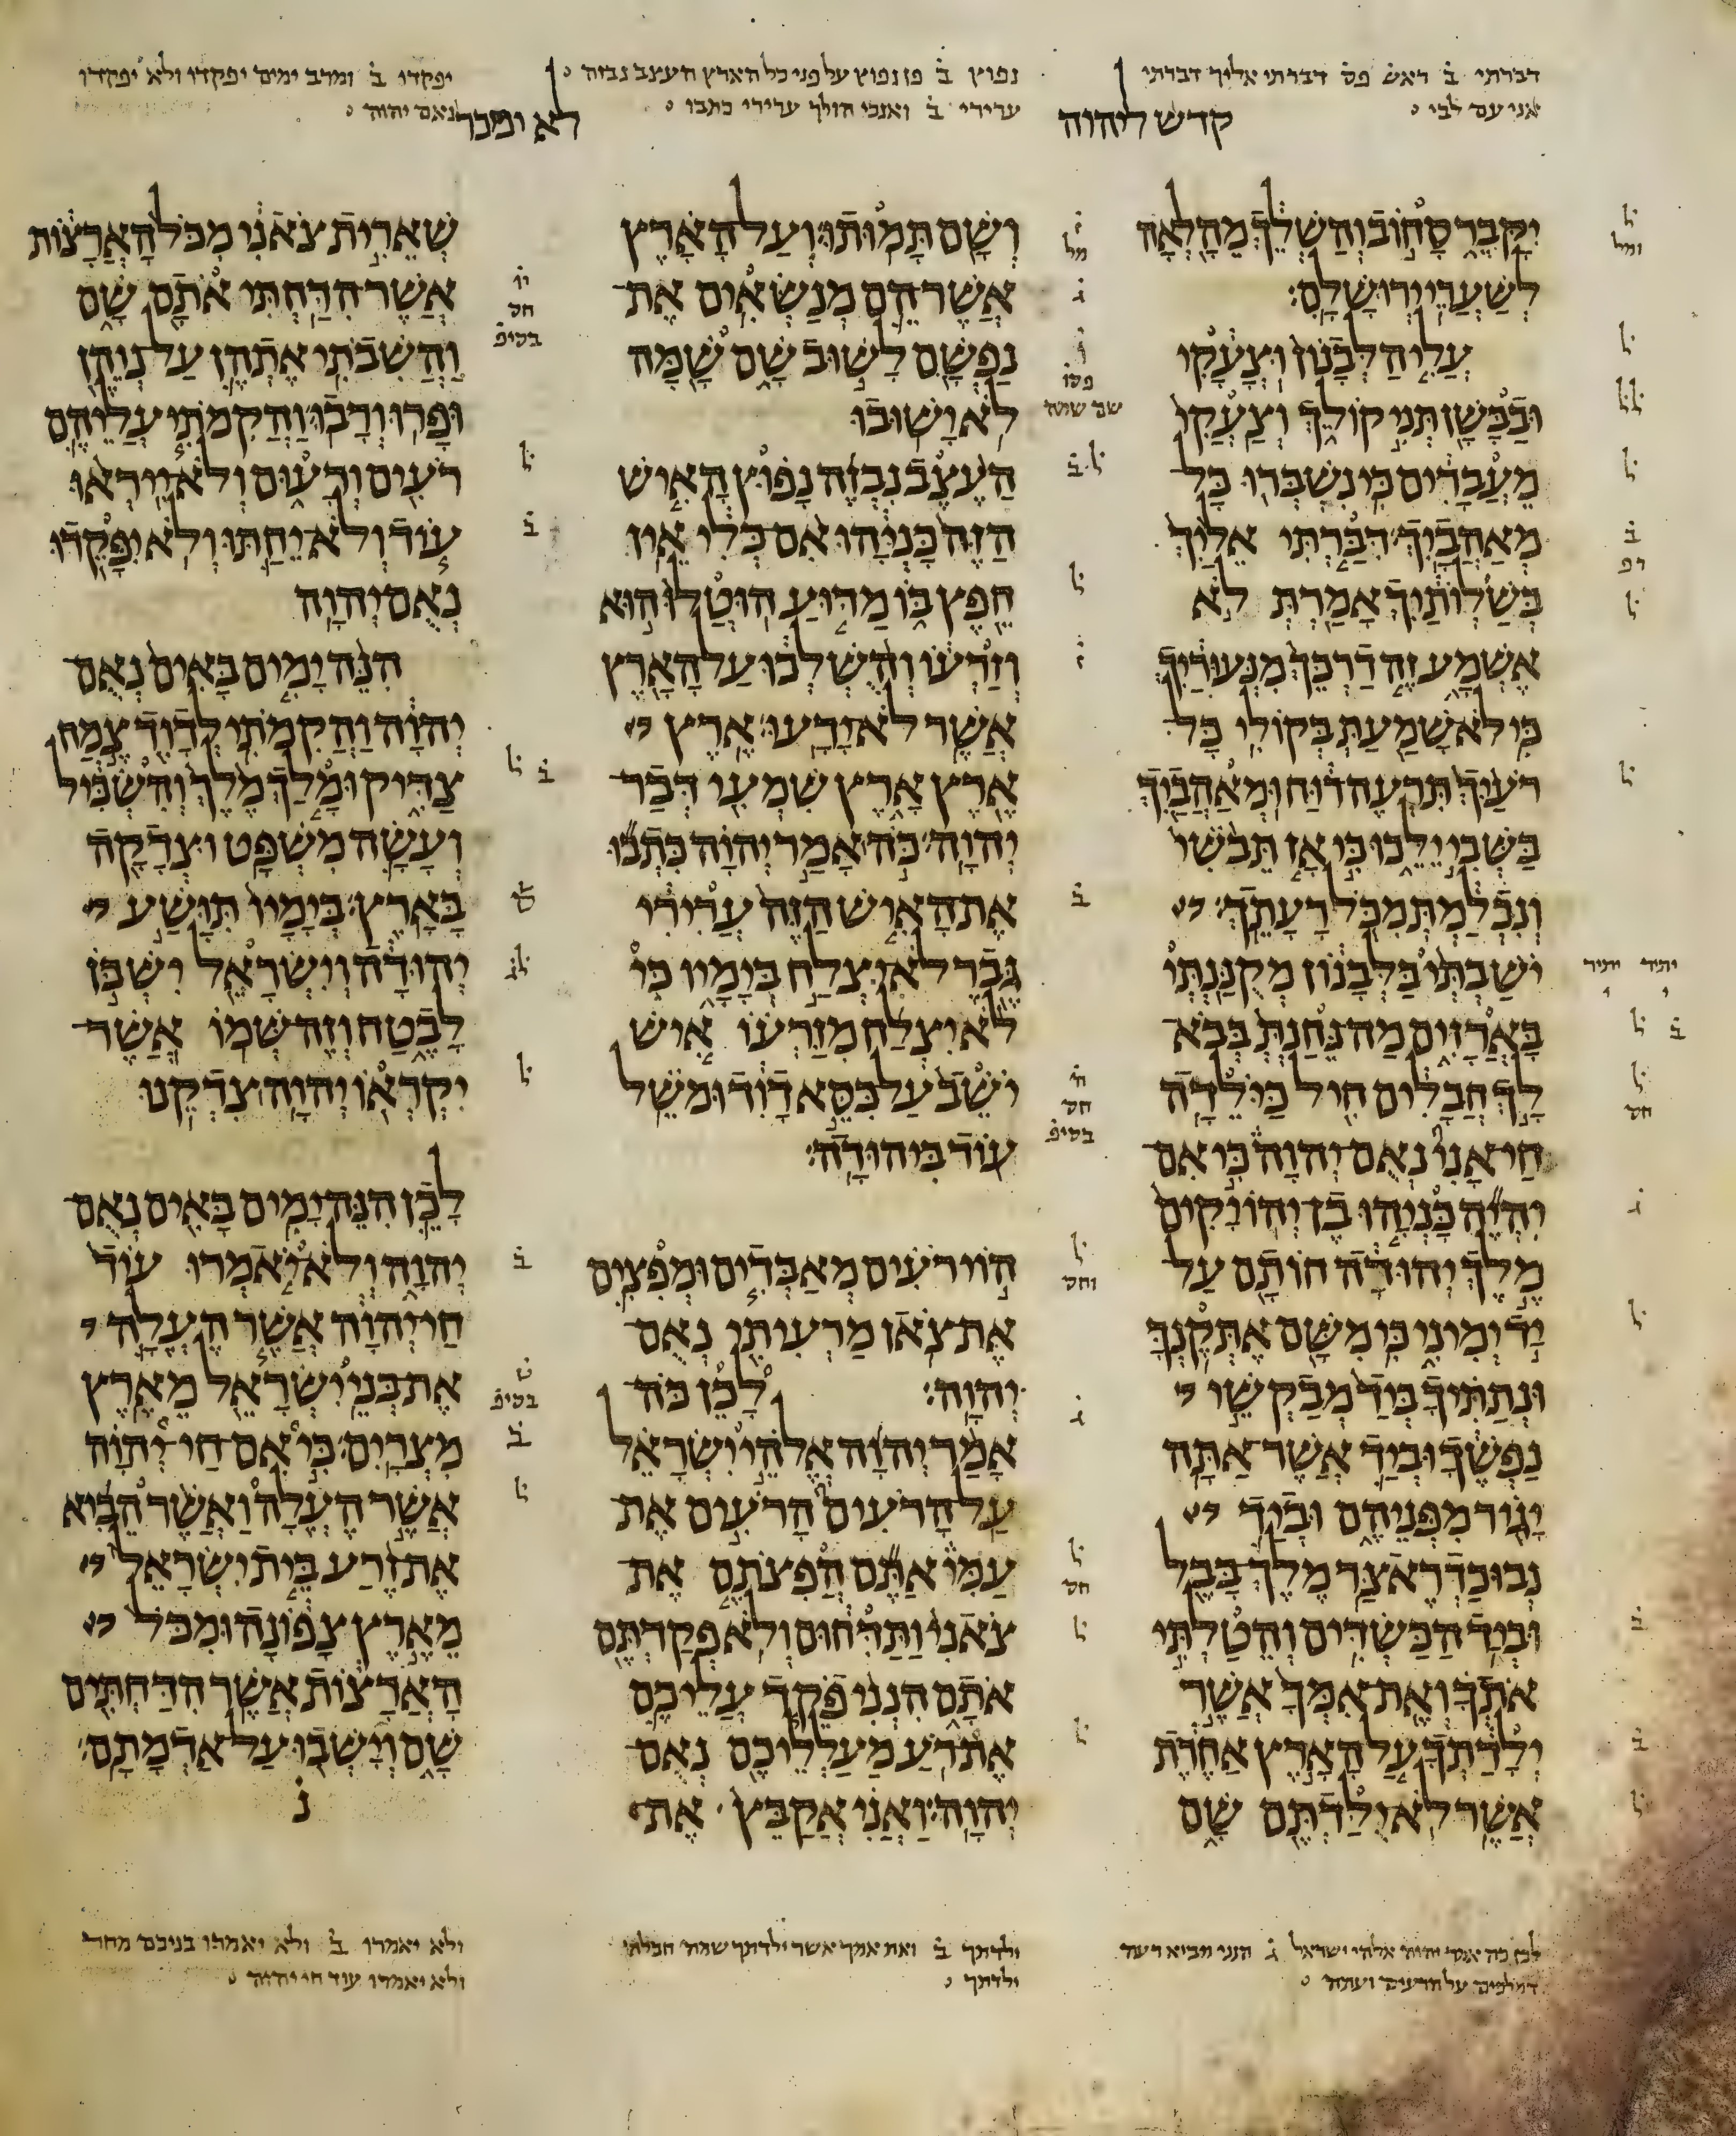 דברתי ב ראש פס דברתי אליך דברתי
אני עם לבי
נפוץ ב פן נפוץ על פני כל הארץ העצב נבזה
ערירי ב ואנכי הולך ערירי כתבו
יפקדו ב ומרב ימים יפקדו ולא יפקדו
נאם יהוה
קדש ליהוה
לא ימכר
יקבר סחוב והשלך מהלאה
לשערי ירושלם׃
עלי הלבנון וצעקי
ובבשן תני קולך וצעקי
מעברים כי נשברו כל
מאהביך דברתי אליך
בשלותיך אמרת לא
אשמע זה דרכך מנעוריך
כי לא שמעת בקולי כל
רעיך תרעה רוח ומאהביך
בשבי ילכו כי אז תבשי
ונכלמת מכל רעתך׃
ישבתי בלבנון מקננתי
בארזים מה נחנת בבא
לך חבלים חיל כילדה
חי אני נאם יהוה כי אם
יהיה כניהו בן יהויקים
מלך יהודה חותם על
יד ימיני כי משם אתקנך
ונתתיך ביד מבקשי
נפשך וביד אשר אתה
יגור מפניהם וביד
נבוכדראצר מלך בבל
וביד הכשדים והטלתי
אתך ואת אמך אשר
ילדתך על הארץ אחרת
אשר לא ילדתם שם
ושם תמותו ועל הארץ
אשר הם מנשאים את
נפשם לשוב שם שמה
לא ישובו
העצב נבזה נפוץ האיש
הזה כניהו אם כלי אין
חפץ בו מדוע הוטלו הוא
וזרעו והשלכו על הארץ
אשר לא ידעו ארץ
ארץ ארץ שמעי דבר
יהוה כה אמר יהוה כתבו
את האיש הזה ערירי
גבר לא יצלח בימיו כי
לא יצלח מזרעו איש
ישב על כסא דויד ומשל
עוד ביהודה׃
הוי רעים מאבדים ומפצים
את צאן מרעיתי נאם
יהוה׃ לכן כה
אמר יהוה אלהי ישראל
על הרעים הרעים את
עמי אתם הפצתם את
צאני ותדחום ולא פקדתם
אתם הנני פקד עליכם
את רע מעלליכם נאם
יהוה׃ ואני אקבץ את
שארית צאני מכל הארצות
אשר הדחתי אתם שם
והשבתי אתהן על נויהן
ופרו ורבו והקמתי עליהם
רעים ורעום ולא ייראו
עוד ולא יחתו ולא יפקדו
נאם יהוה
הנה ימים באים נאם
יהוה והקמתי לדוד צמח
צדיק ומלך מלך והשכיל
ועשה משפט וצדקה
בארץ בימיו תושע
יהודה וישראל ישכן
לבטח וזה שמו אשר
יקראו יהוה צדקנו
לכן הנה ימים באים נאם
יהוה ולא יאמרו עוד
חי יהוה אשר העלה
את בני ישראל מארץ
מצרים כי אם חי יהוה
אשר העלה ואשר הביא
את זרע בית ישראל
מארץ צפונה ומכל
הארצות אשר הדחתים
שם וישבו על אדמתם׃
לכן כה אמר יהוה אלהי ישראל ג הנני מביא רעה
דמלכים על הרעים ועתה
ילדתך ב ואת אמך אשר ילדתך שמה חבלתך
ילדתך
ולא יאמרו ב ולא יאמרו בניכם מחר
ולא יאמרו עוד חי יהוה